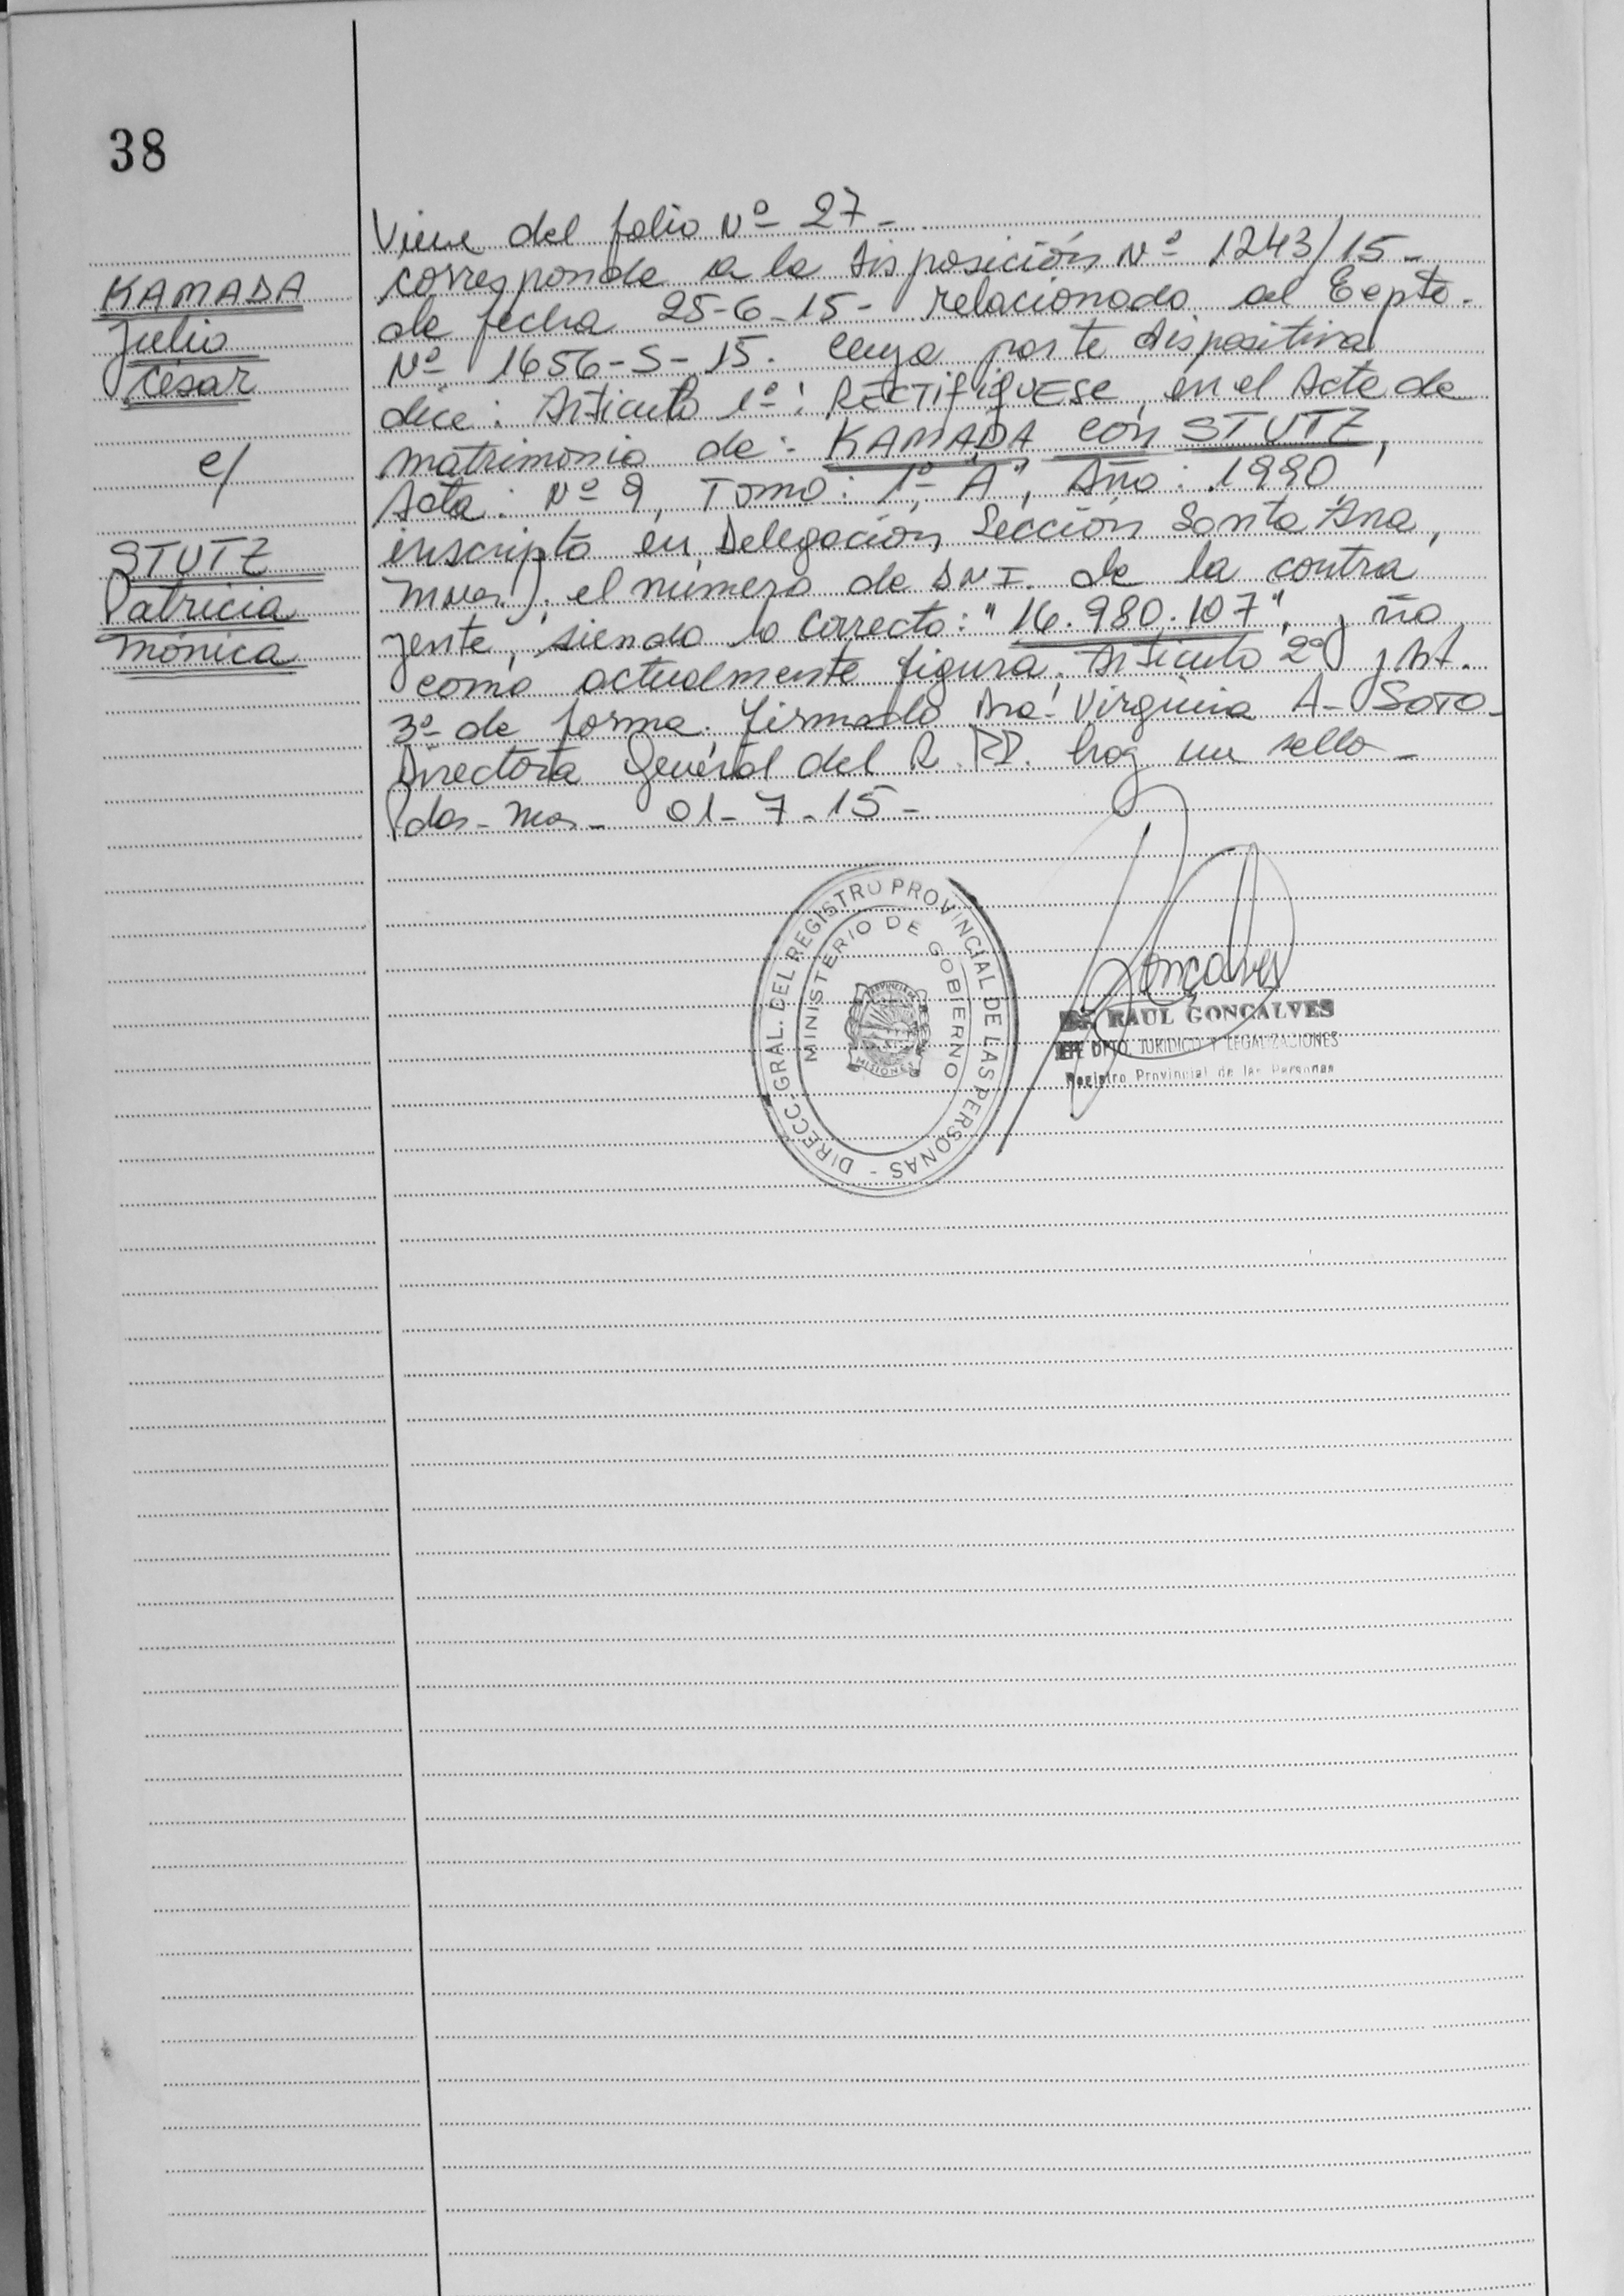 38
KAMADA
Julio
César
c/
STUTZ
Patricia
Mónica
Viene del folio Nº 27-
corresponde a la Disposición Nº 1243/15-
de fecha 25-6-15- relacionado al Expte.
Nº 1656-S-15. cuya parte dispositiva
dice: Artículo 1º: RECTIFIQUESE, en el Acta de
matrimonio de: KAMADA con STUTZ,
Acta: Nº 9, Tomo: 1º "A", Año: 1990
inscripta en Delegación Sección Santa Ana,
Mnes). el número de DNI. de la contra
yente, siendo lo correcto: "16.980.107", y no
como actualmente figura. Artículo 2º y Art.
3º de forma. Firmado Dra. Virginia A- SOTO-
Directora General del R.PP. hay un sello-
Pdas- Mnes- 01-7-15-
DIRECC. GRAL. DEL REGISTRO PROVINCIAL DE LAS PERSONAS -
MINISTERIO DE GOBIERNO
PROVINCIA DE
MISIONES
Gonçalves
Dr. RAUL GONCALVES
JEFE DPTO. JURIDICO Y LEGALIZACIONES
Registro Provincial de las Personas